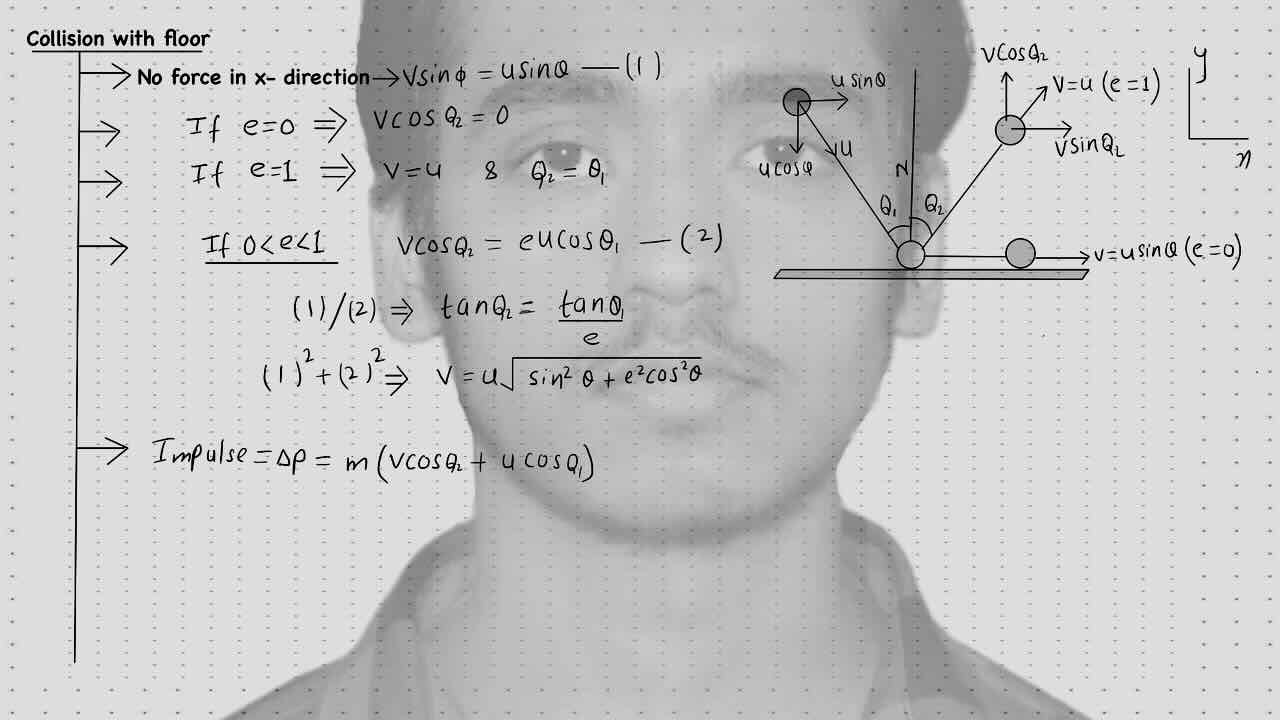 Collision with floor
No force in x- direction → Vsinϕ = usinθ — (1)
If e=0 ⇒ VCOS Q₂ = 0
If e=1 ⇒ V=u & Q₂ = θ₁
If 0<e<1 VCOSQ₂ = eucosθ₁ — (2)
(1)/(2) ⇒ tanQ₂ = tanθ₁/e
(1)² + (2)² ⇒ V = u√(sin² θ + e²cos²θ)
Impulse = Δp = m(VCOSQ₂ + u COSQ₁)
VCosQ₂
y
u sinθ
V=u (e=1)
u
VsinQ₂
ucosθ
N
x
Q₁
Q₂
V=usinθ (e=0)